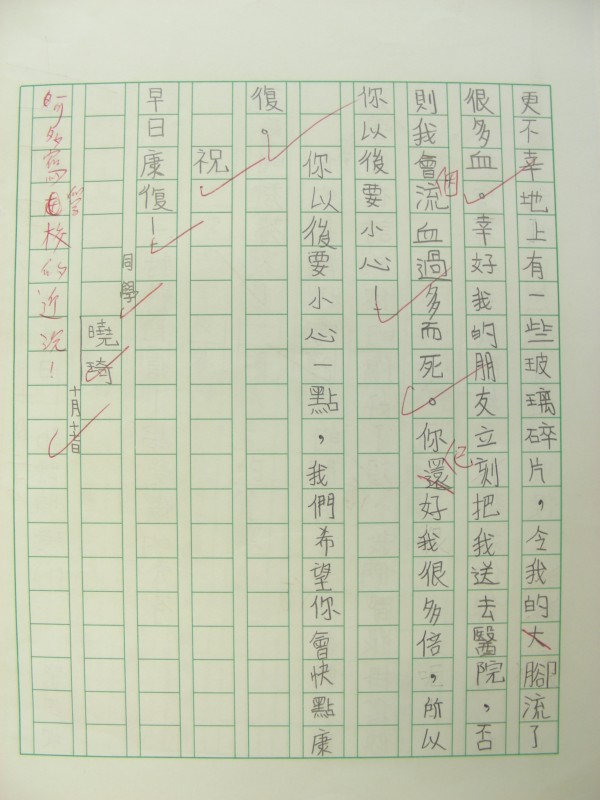 更不幸地上有一些玻璃碎片，令我的大腳流了
很多血。幸好我的朋友立刻把我送去醫院，否
則我會流血過多而死。你還好我很多倍，所以
因
已
你以後要小心！
你以後要小心一點，我們希望你會快點康
復。
祝
早日康復！
同學
曉琦
十月十二日
可多寫學校的近況！